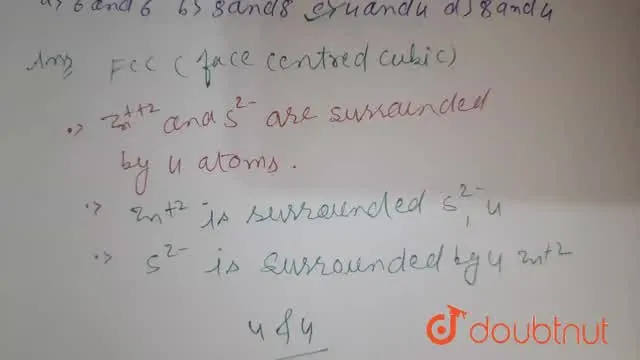 a) 6 and 6 b) 8 and 8 c) 4 and 4 d) 8 and 4
Ans FCC (face centred cubic)
∴ Zn+2 and S2- are surrounded
by 4 atoms.
∴ Zn+2 is surrounded S2-, 4
∴ S2- is surrounded by 4 Zn+2
4 & 4
doubtnut